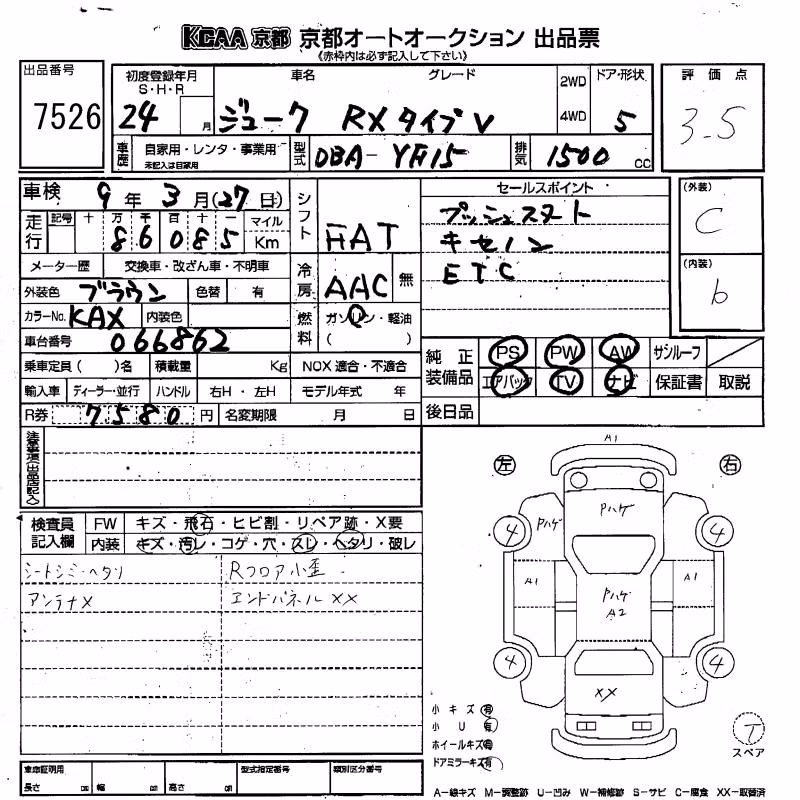 KCAA 京都 京都オートオークション 出品票
《赤枠内は必ず記入して下さい》
出品番号
7526
初度登録年月 車名 グレード 2WD ドア・形状
S・H・R
24 月 ジューク RXタイプV 4WD 5
車歴 自家用・レンタ・事業用 型式 DBA-YF15 排気 1500 cc
未記入は自家用
評価点
3-5
車検 9年 3月(27日)
走行 記号 十 万 千 百 十 一 マイル
86085 Km
メーター歴 交換車・改ざん車・不明車
外装色 ブラウン 色替 有
カラーNo. KAX 内装色
車台番号 066862
乗車定員( )名 積載量 Kg NOX 適合・不適合
輸入車 ディーラー・並行 ハンドル 右H・左H モデル年式 年
R券 7580 円 名変期限 月 日
シフト FAT
冷房 AAC 無
燃料 ガソリン・軽油
( )
セールスポイント
プッシュスタート
キセノン
ETC
(外装)
C
(内装)
b
純正装備品 PS PW AW サンルーフ
エアバック TV ナビ 保証書 取説
後日品
注意事項(出品店記入)
検査員記入欄 FW キズ・飛石・ヒビ割・リペア跡・X要
内装 キズ・汚レ・コゲ・穴・スレ・ヘタリ・破レ
シートシミ・ヘタリ Rフロア小歪
アンテナX エンドパネルXX
左 A1 右
Pハゲ
Pハゲ
4 4
A1 A1
Pハゲ
A2
4 4
XX
小キズ 有
小U 有
ホイールキズ 有
ドアミラーキズ 有
T
スペア
車庫証明用 型式指定番号 類別区分番号
長さ cm 幅 cm 高さ cm
A-線キズ M-調整跡 U-凹み W-補修跡 S-サビ C-腐食 XX-取替済